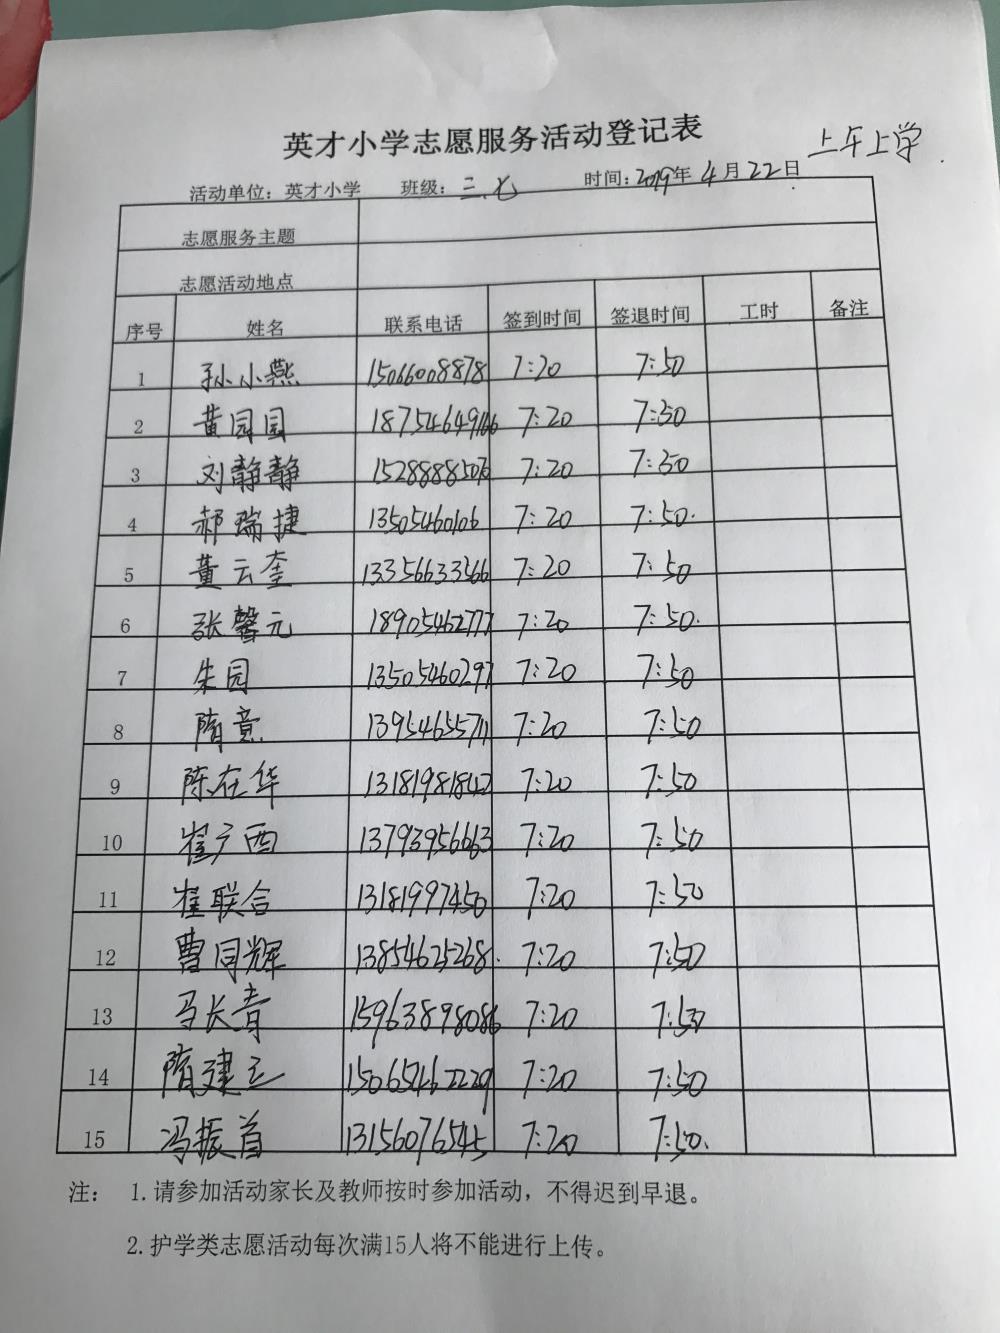 英才小学志愿服务活动登记表 上午上学
活动单位：英才小学 班级：三.七 时间：2019年4月22日
志愿服务主题
志愿活动地点
序号 姓名 联系电话 签到时间 签退时间 工时 备注
1 孙小燕 15066008878 7:20 7:50
2 黄园园 18754649166 7:20 7:50
3 刘静静 15288885076 7:20 7:50
4 郝瑞捷 13505460106 7:20 7:50.
5 董云奎 13356633566 7:20 7:50
6 张馨元 18905462777 7:20 7:50.
7 朱园 13505460297 7:20 7:50
8 隋竟 13954655711 7:20 7:50
9 陈在华 13181981842 7:20 7:50
10 崔广西 13793956663 7:20 7:50
11 崔联合 13181997450 7:20 7:50
12 曹同辉 13854625268. 7:20 7:50
13 马长青 15963898086 7:20 7:50
14 隋建立 15065462229 7:20 7:50
15 冯振首 13156076545 7:20 7:50.
注： 1.请参加活动家长及教师按时参加活动，不得迟到早退。
2.护学类志愿活动每次满15人将不能进行上传。